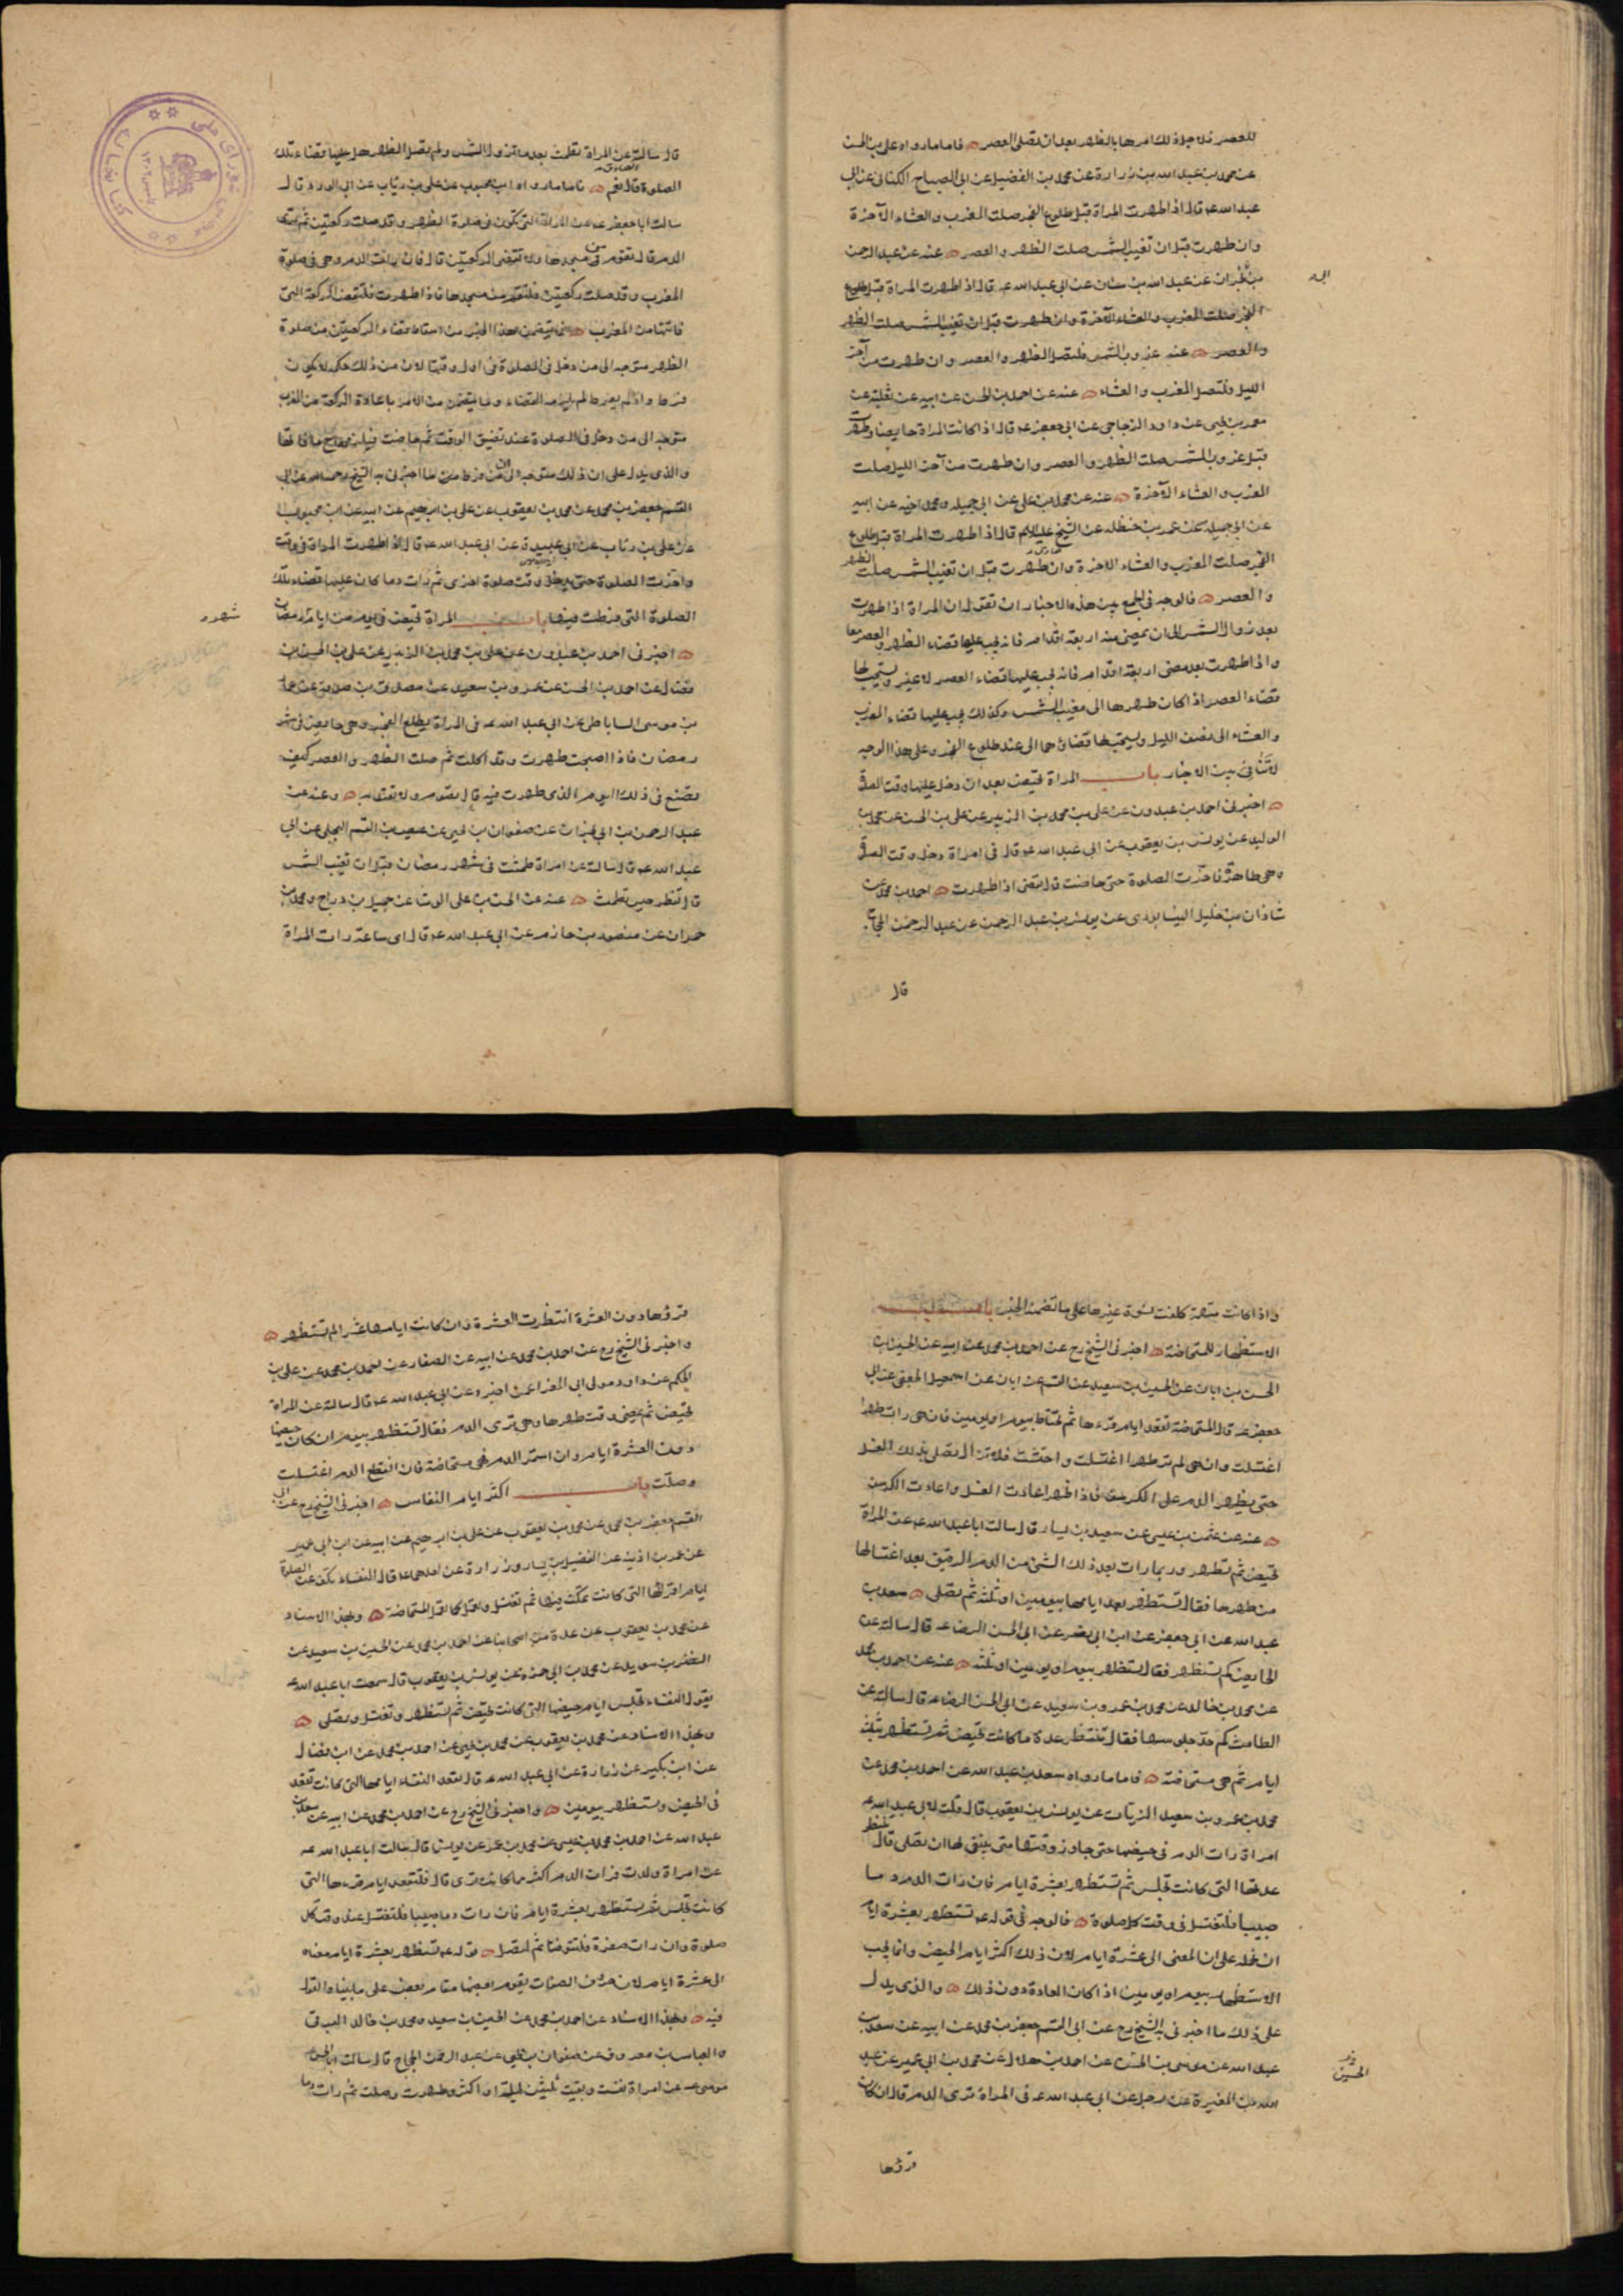 للعصر فلاجل ذلك امرها بالظهر بعد ان تصلى العصر فاما ما رواه على بن الحسن
عن محمد بن عبد الله بن زرارة عن محمد بن الفضيل عن ابى الصباح الكنانى عن ابى
عبد الله عه قال اذا طهرت المراة قبل طلوع الفجر صلت المغرب والعشاء الآخرة
وان طهرت قبل ان تغيب الشمس صلت الظهر والعصر عنه عن عبد الرحمن
بن نجران عن عبد الله بن سنان عن ابى عبد الله عه قال اذا طهرت المراة قبل طلوع
الفجر صلت المغرب والعشاء الآخرة وان طهرت قبل ان تغيب الشمس صلت الظهر
والعصر عنه غروب الشمس فلتصل الظهر والعصر وان طهرت من آخر
الليل فلتصل المغرب والعشاء عنه عن احمد بن الحسن عن ابيه عن ثعلبة عن
معمر بن يحيى عن داود الزجاجى عن ابى جعفر عه قال اذا كانت المراة حايضا وطهرت
قبل غروب الشمس صلت الظهر والعصر وان طهرت من آخر الليل صلت
المغرب والعشاء الآخرة عنه عن محمد بن على عن ابى جميلة ومحمد اخيه عن ابيه
عن ابى جميلة عن عمر بن حنظله عن الشيخ عليه السلام قال اذا طهرت المراة قبل طلوع
الفجر صلت المغرب والعشاء الاخرة وان طهرت قبل ان تغيب الشمس صلت الظهر
والعصر فالوجه فى الجمع بين هذه الاخبار ان نقول ان المراة اذا طهرت
بعد زوال الشمس الى ان يمضى منه اربعة اقدام فانه يجب عليها قضاء الظهر والعصر معا
واذا طهرت بعد مضى اربعة اقدام فانه يجب عليها قضاء العصر لا غير ويستحب لها
قضاء العصر اذا كان طهرها الى مغيب الشمس وكذلك يجب عليها قضاء المغرب
والعشاء الى نصف الليل ويستحب لها قضاؤهما الى عند طلوع الفجر وعلى هذا الوجه
لا تنافى بين الاخبار باب المراة تحيض بعد ان دخل عليها وقت الصلوة
اخبرنى احمد بن عبدون عن على بن محمد بن الزبير عن على بن الحسن عن محمد بن
الوليد عن يونس بن يعقوب عن ابى عبد الله عه قال فى امراة دخل وقت الصلوة
وهى طاهرة فاخرت الصلوة حتى حاضت قال تقضى اذا طهرت احمد بن محمد عن
شاذان بن خليل النيسابورى عن يونس بن عبد الرحمن عن عبد الرحمن بن الحجاج
قال
قال سالته عن المراة تطمث بعد ما تزول الشمس ولم تصل الظهر هل عليها قضاء تلك
الصلوة قال نعم فاما ما رواه ابن محبوب عن على بن رئاب عن ابى الورد قال
سالت ابا جعفر عه عن المراة التى تكون فى صلوة الظهر وقد صلت ركعتين ثم ترى
الدم قال تقوم من مسجدها ولا تقضى الركعتين قال فان رات الدم وهى فى صلوة
المغرب وقد صلت ركعتين فلتقم من مسجدها فاذا طهرت فلتقض الركعة التى
فاتتها من المغرب فما يتضمن هذا الخبر من اسقاط قضاء الركعتين من صلوة
الظهر متوجه الى من دخل فى الصلوة فى اول وقتها لان من ذلك حكمه لا يكون
فرط واذا لم يفرط لم يلزمه القضاء وما يتضمن من الامر باعادة الركعة من المغرب
متوجه الى من دخل فى الصلوة عند تضيق الوقت ثم حاضت فيلزمها ح ما فاتها
والذى يدل على ان ذلك متوجه الى من فرط ما اخبرنى به الشيخ رحمه الله عن ابى
القسم جعفر بن محمد عن محمد بن يعقوب عن على بن ابرهيم عن ابيه عن ابن محبوب
عن على بن رئاب عن ابى عبيدة عن ابى عبد الله عه قال اذا طهرت المراة فى وقت
واخرت الصلوة حتى يدخل وقت صلوة اخرى ثم رات دما كان عليها قضاء تلك
الصلوة التى فرطت فيها باب المراة تحيض فى يوم من ايام رمضان
شهر
اخبرنى احمد بن عبدون عن على بن محمد بن الزبير عن على بن الحسن بن
فضال عن احمد بن الحسن عن عمرو بن سعيد عن مصدق بن صدقة عن عمار
بن موسى الساباطى عن ابى عبد الله عه فى المراة يطلع الفجر وهى حايض فى شهر
رمضان فاذا اصبحت طهرت وقد اكلت ثم صلت الظهر والعصر كيف
تصنع فى ذلك اليوم الذى طهرت فيه قال تصوم ولا تعتد به وعنه عن
عبد الرحمن بن ابى نجران عن صفوان بن يحيى عن عيص بن القسم البجلى عن ابى
عبد الله عه قال سالته عن امراة طمثت فى شهر رمضان قبل ان تغيب الشمس
قال تفطر حين تطمث عنه عن الحسن بن على الوشا عن جميل بن دراج ومحمد بن
حمران عن منصور بن حازم عن ابى عبد الله عه قال اى ساعة رات المراة
واذا كانت متهمة كلفت نسوة غيرها على ما تضمن الخبر باب
الاستظهار للمستحاضة اخبرنى الشيخ رح عن احمد بن محمد عن ابيه عن الحسين بن
الحسن بن ابان عن الحسين بن سعيد عن القسم عن ابان عن اسمعيل الجعفى عن ابى
جعفر عه قال المستحاضة تقعد ايام قرءها ثم تحتاط بيوم او يومين فان هى رات طهرا
اغتسلت وان هى لم تر طهرا اغتسلت واحتشت فلا تزال تصلى بذلك الغسل
حتى يظهر الدم على الكرسف فاذا ظهر اعادت الغسل واعادت الكرسف
عنه عن عثمن بن عيسى عن سعيد بن يسار قال سالت ابا عبد الله عه عن المراة
تحيض ثم تطهر وربما رات بعد ذلك الشئ من الدم الرقيق بعد اغتسالها
من طهرها فقال تستظهر بعد ايامها بيومين او ثلثة ثم تصلى سعد بن
عبد الله عن ابى جعفر عن ابن ابى نصر عن ابى الحسن الرضا عه قال سالته عن
الحايض كم تستظهر فقال تستظهر بيوم او يومين او ثلثة عنه عن احمد بن محمد
عن محمد بن خالد عن محمد بن عمرو بن سعيد عن ابى الحسن الرضا عه قال سالته عن
الطامث كم حد جلوسها فقال تنتظر عدة ما كانت تحيض ثم تستظهر بثلثة
ايام ثم هى مستحاضة فاما ما رواه سعد بن عبد الله عن احمد بن محمد عن
محمد بن عمرو بن سعيد الزيات عن يونس بن يعقوب قال قلت لابى عبد الله عه
امراة رات الدم فى حيضها حتى جاوز وقتها متى ينبغى لها ان تصلى قال تنتظر
عدتها التى كانت تجلس ثم تستظهر بعشرة ايام فان رات الدم دما
صبيبا فلتغتسل فى وقت كل صلوة فالوجه فى قوله عه تستظهر بعشرة ايام
ان نحمله على ان المعنى الى عشرة ايام لان ذلك اكثر ايام الحيض وانما يجب
الاستظهار بيوم او يومين اذا كان العادة دون ذلك والذى يدل
على ذلك ما اخبرنى به الشيخ رح عن ابى القسم جعفر بن محمد عن ابيه عن سعد بن
عبد الله عن موسى بن الحسن عن احمد بن هلال عن محمد بن ابى عمير عن عبد
الحسين
الله بن المغيرة عن رجل عن ابى عبد الله عه فى المراة ترى الدم قال ان كان
قرؤها
قرؤها دون العشرة انتظرت العشرة وان كانت ايامها عشرا لم تستظهر
واخبرنى الشيخ رح عن احمد بن محمد عن ابيه عن الصفار عن احمد بن محمد عن على بن
الحكم عن داود مولى ابى المغرا عمن اخبره عن ابى عبد الله عه قال سالته عن المراة
تحيض ثم يمضى وقت طهرها وهى ترى الدم فقال تستظهر بيوم ان كان حيضها
دون العشرة ايام وان استمر الدم فهى مستحاضة فان انقطع الدم اغتسلت
وصلت باب اكثر ايام النفاس اخبرنى الشيخ رح عن ابى
القسم جعفر بن محمد عن محمد بن يعقوب عن على بن ابرهيم عن ابيه عن ابن ابى عمير
عن عمر بن اذينه عن الفضيل بن يسار وزرارة عن احدهما عه قال النفساء تكف عن الصلوة
ايام اقرائها التى كانت تمكث فيها ثم تغتسل وتعمل كما تعمل المستحاضة وبهذا الاسناد
عن محمد بن يعقوب عن عدة من اصحابنا عن احمد بن محمد عن الحسين بن سعيد عن
النضر بن سويد عن محمد بن ابى حمزه عن يونس بن يعقوب قال سمعت ابا عبد الله عه
يقول النفساء تجلس ايام حيضها التى كانت تحيض ثم تستظهر وتغتسل وتصلى
وبهذا الاسناد عن محمد بن يعقوب عن محمد بن يحيى عن احمد بن محمد عن ابن فضال
عن ابن بكير عن زرارة عن ابى عبد الله عه قال تقعد النفساء ايامها التى كانت تقعد
فى الحيض وتستظهر بيومين واخبرنى الشيخ رح عن احمد بن محمد عن ابيه عن سعد بن
عبد الله عن احمد بن محمد بن عيسى عن محمد بن عمرو عن يونس قال سالت ابا عبد الله عه
عن امراة ولدت فرات الدم اكثر مما كانت ترى قال فلتقعد ايام قرءها التى
كانت تجلس ثم تستظهر بعشرة ايام فان رات دما صبيبا فلتغتسل عند وقت كل
صلوة وان رات صفرة فلتتوضا ثم لتصل قوله عه تستظهر بعشرة ايام معناه
الى عشرة ايام لان حروف الصفات يقوم بعضها مقام بعض على ما بيناه القول
فيه وبهذا الاسناد عن احمد بن محمد عن الحسين بن سعيد ومحمد بن خالد البرقى
والعباس بن معروف عن صفوان بن يحيى عن عبد الرحمن بن الحجاج قال سالت ابا الحسن
موسى عه عن امراة نفست وبقيت ثلثين ليلة او اكثر وطهرت وصلت ثم رات دما